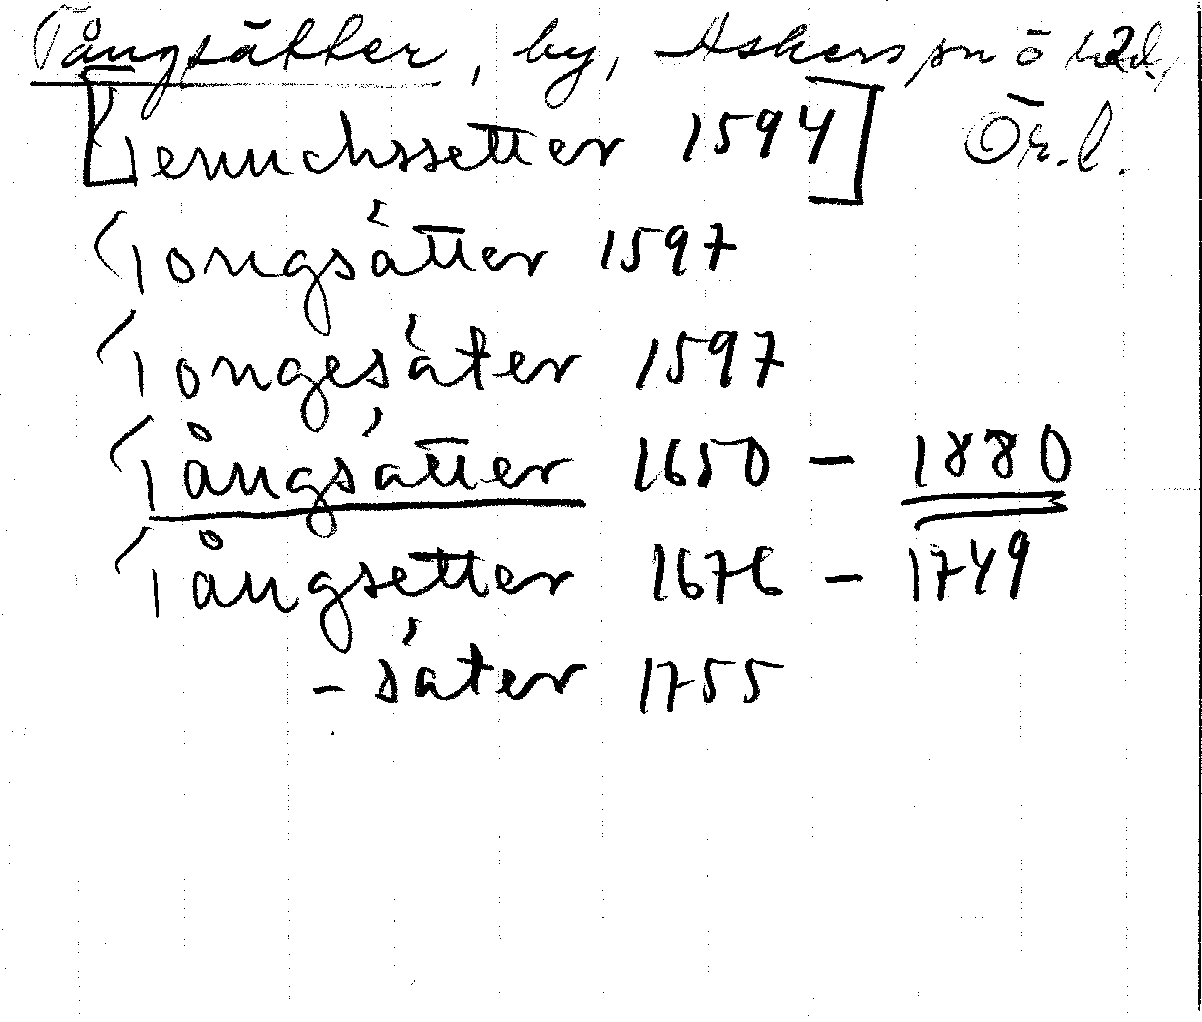 Tångsätter, by, Askers sn Ö 2d,
[Tenuchssetter 1594] Ör.l.
Tongsätter 1597
Tongesäter 1597
Tångsätter 1650 – 1880
Tångsetter 1676 – 1749
– säter 1755